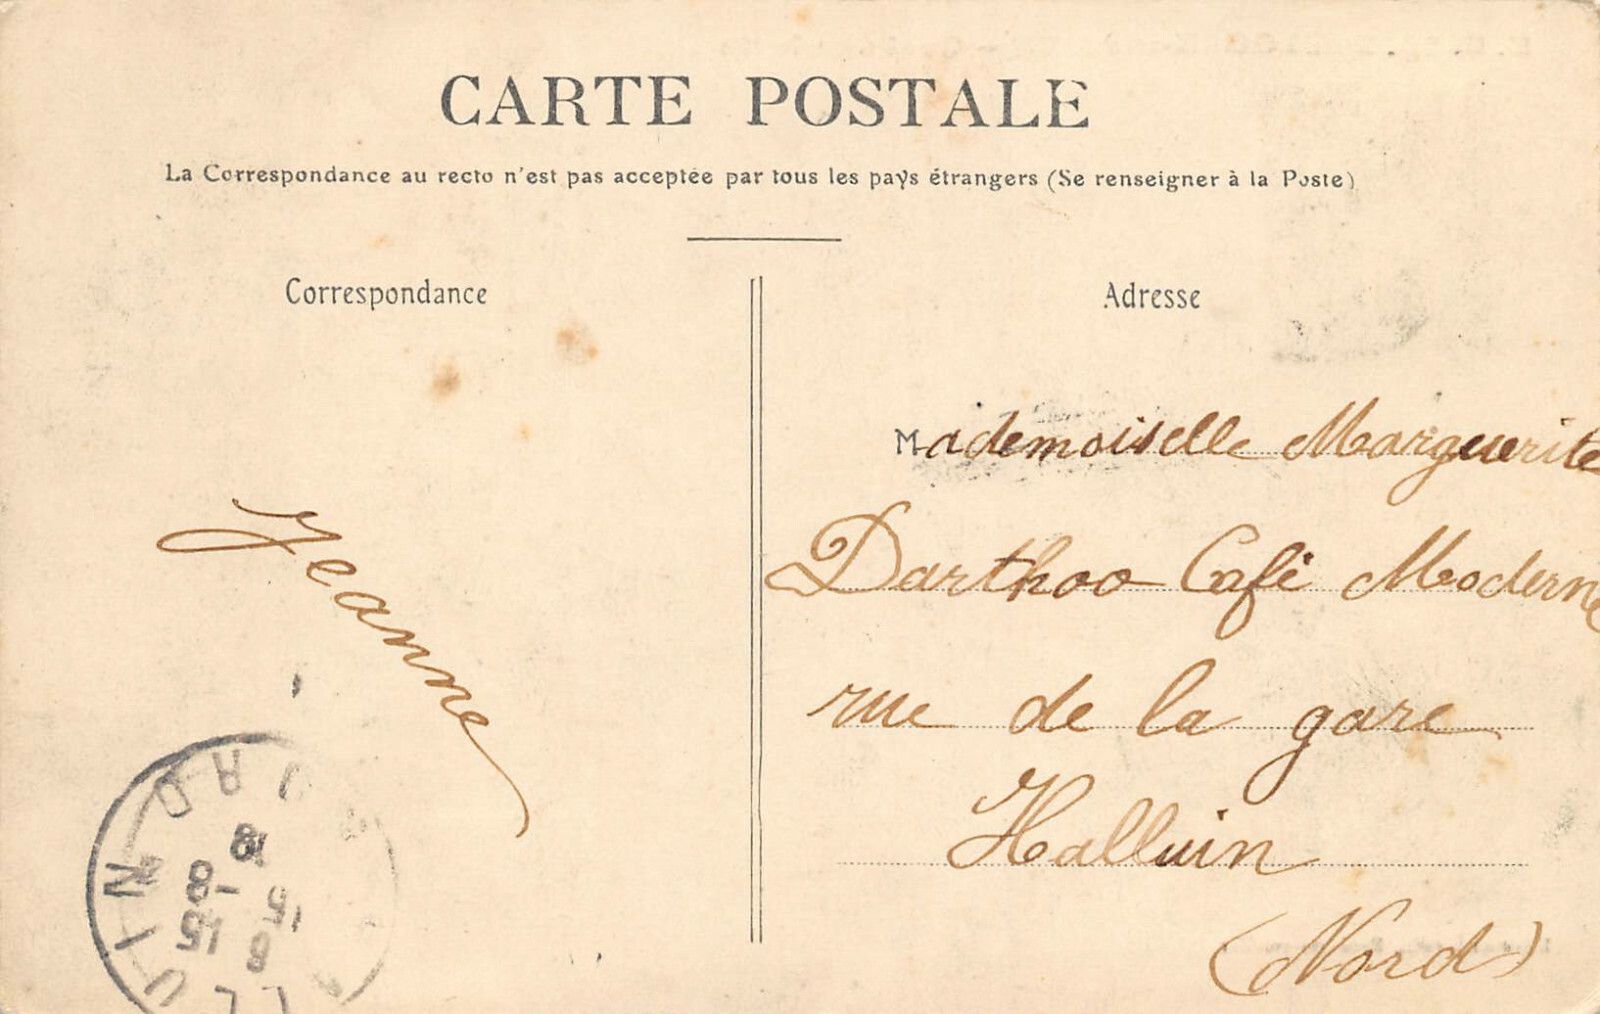 CARTE POSTALE
La Correspondance au recto n'est pas acceptée par tous les pays étrangers (Se renseigner à la Poste)
Correspondance
Adresse
Mademoiselle Marguerite
Darthoo Café Moderne
rue de la gare
Halluin
(Nord)
Jeanne